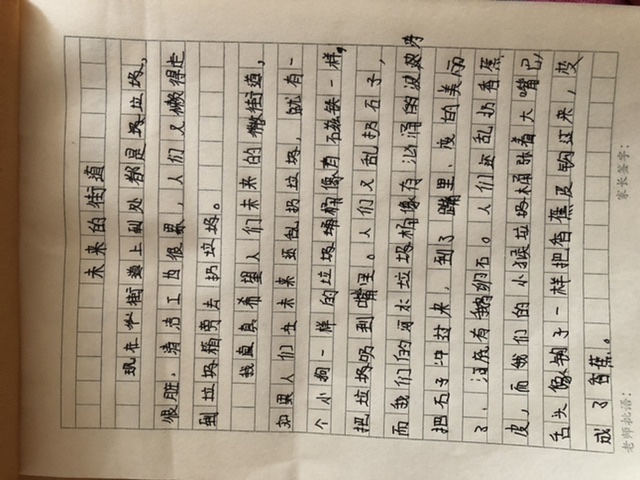 未来的街道
现在街道上到处都是垃圾，
很脏，清洁工也很累，人们又懒得走
到垃圾箱旁去扔垃圾。
我真希望人们未来的街道，
如果人们在未来还乱扔垃圾，就有一
个小狗一样的垃圾桶像有磁铁一样，
把垃圾吸到嘴里。人们又乱扔石子，
而我们的河水垃圾桶像有汹涌的波
把石子冲过来，到了嘴里，变的美丽
了，河底有鹅卵石。人们还乱扔香蕉
皮，而我们的小猴垃圾桶张着大嘴巴，
舌头像钩子一样把香蕉皮钩过来，变
成了香蕉。
家长签字：
老师批语：